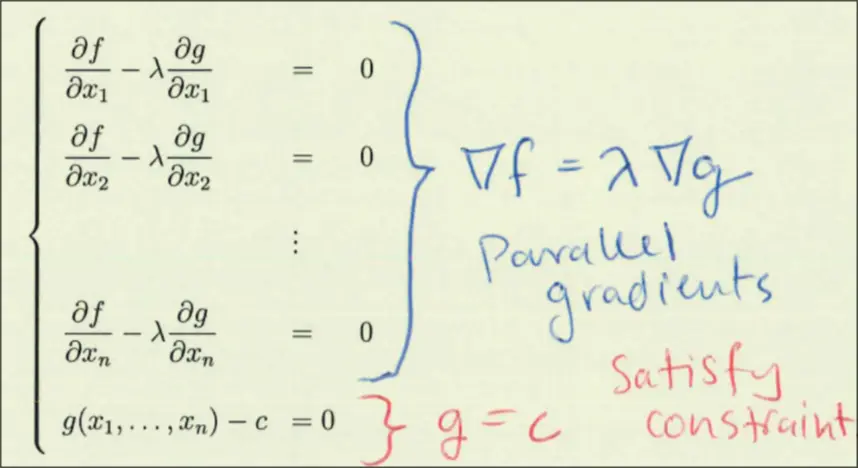 ∂f/∂x₁ − λ ∂g/∂x₁ = 0
∂f/∂x₂ − λ ∂g/∂x₂ = 0
⋮
∂f/∂xₙ − λ ∂g/∂xₙ = 0
g(x₁, . . . , xₙ) − c = 0
∇f = λ ∇g
Parallel
gradients
g = c
Satisfy
constraint